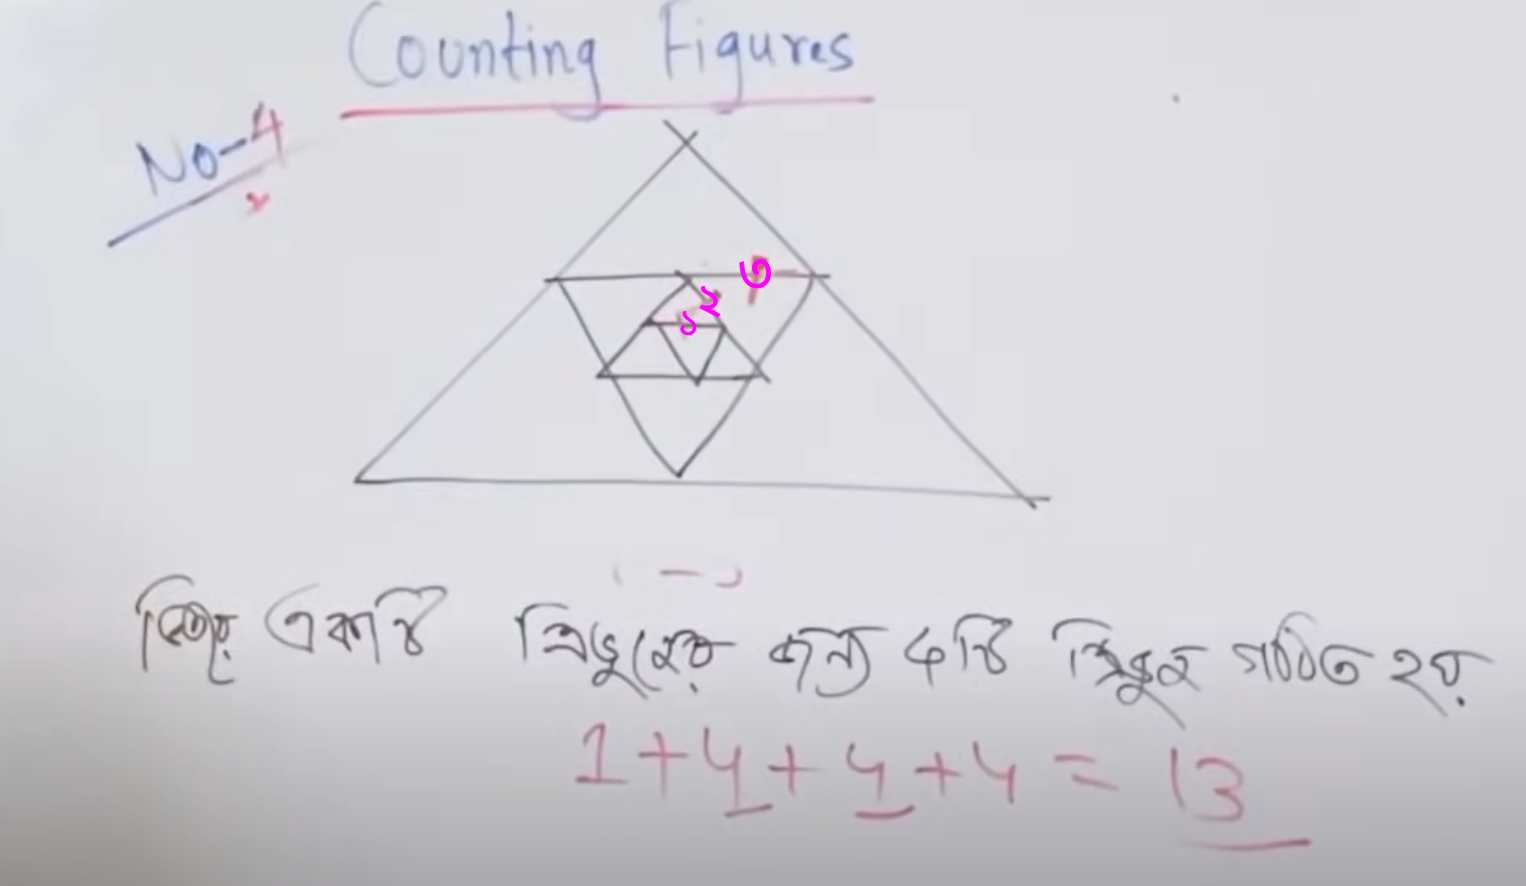 Counting Figures
No-4
৩
২
১
একটি ত্রিভুজের জন্য ৪টি ত্রিভুজ গঠিত হয়
1+4+4+4 = 13